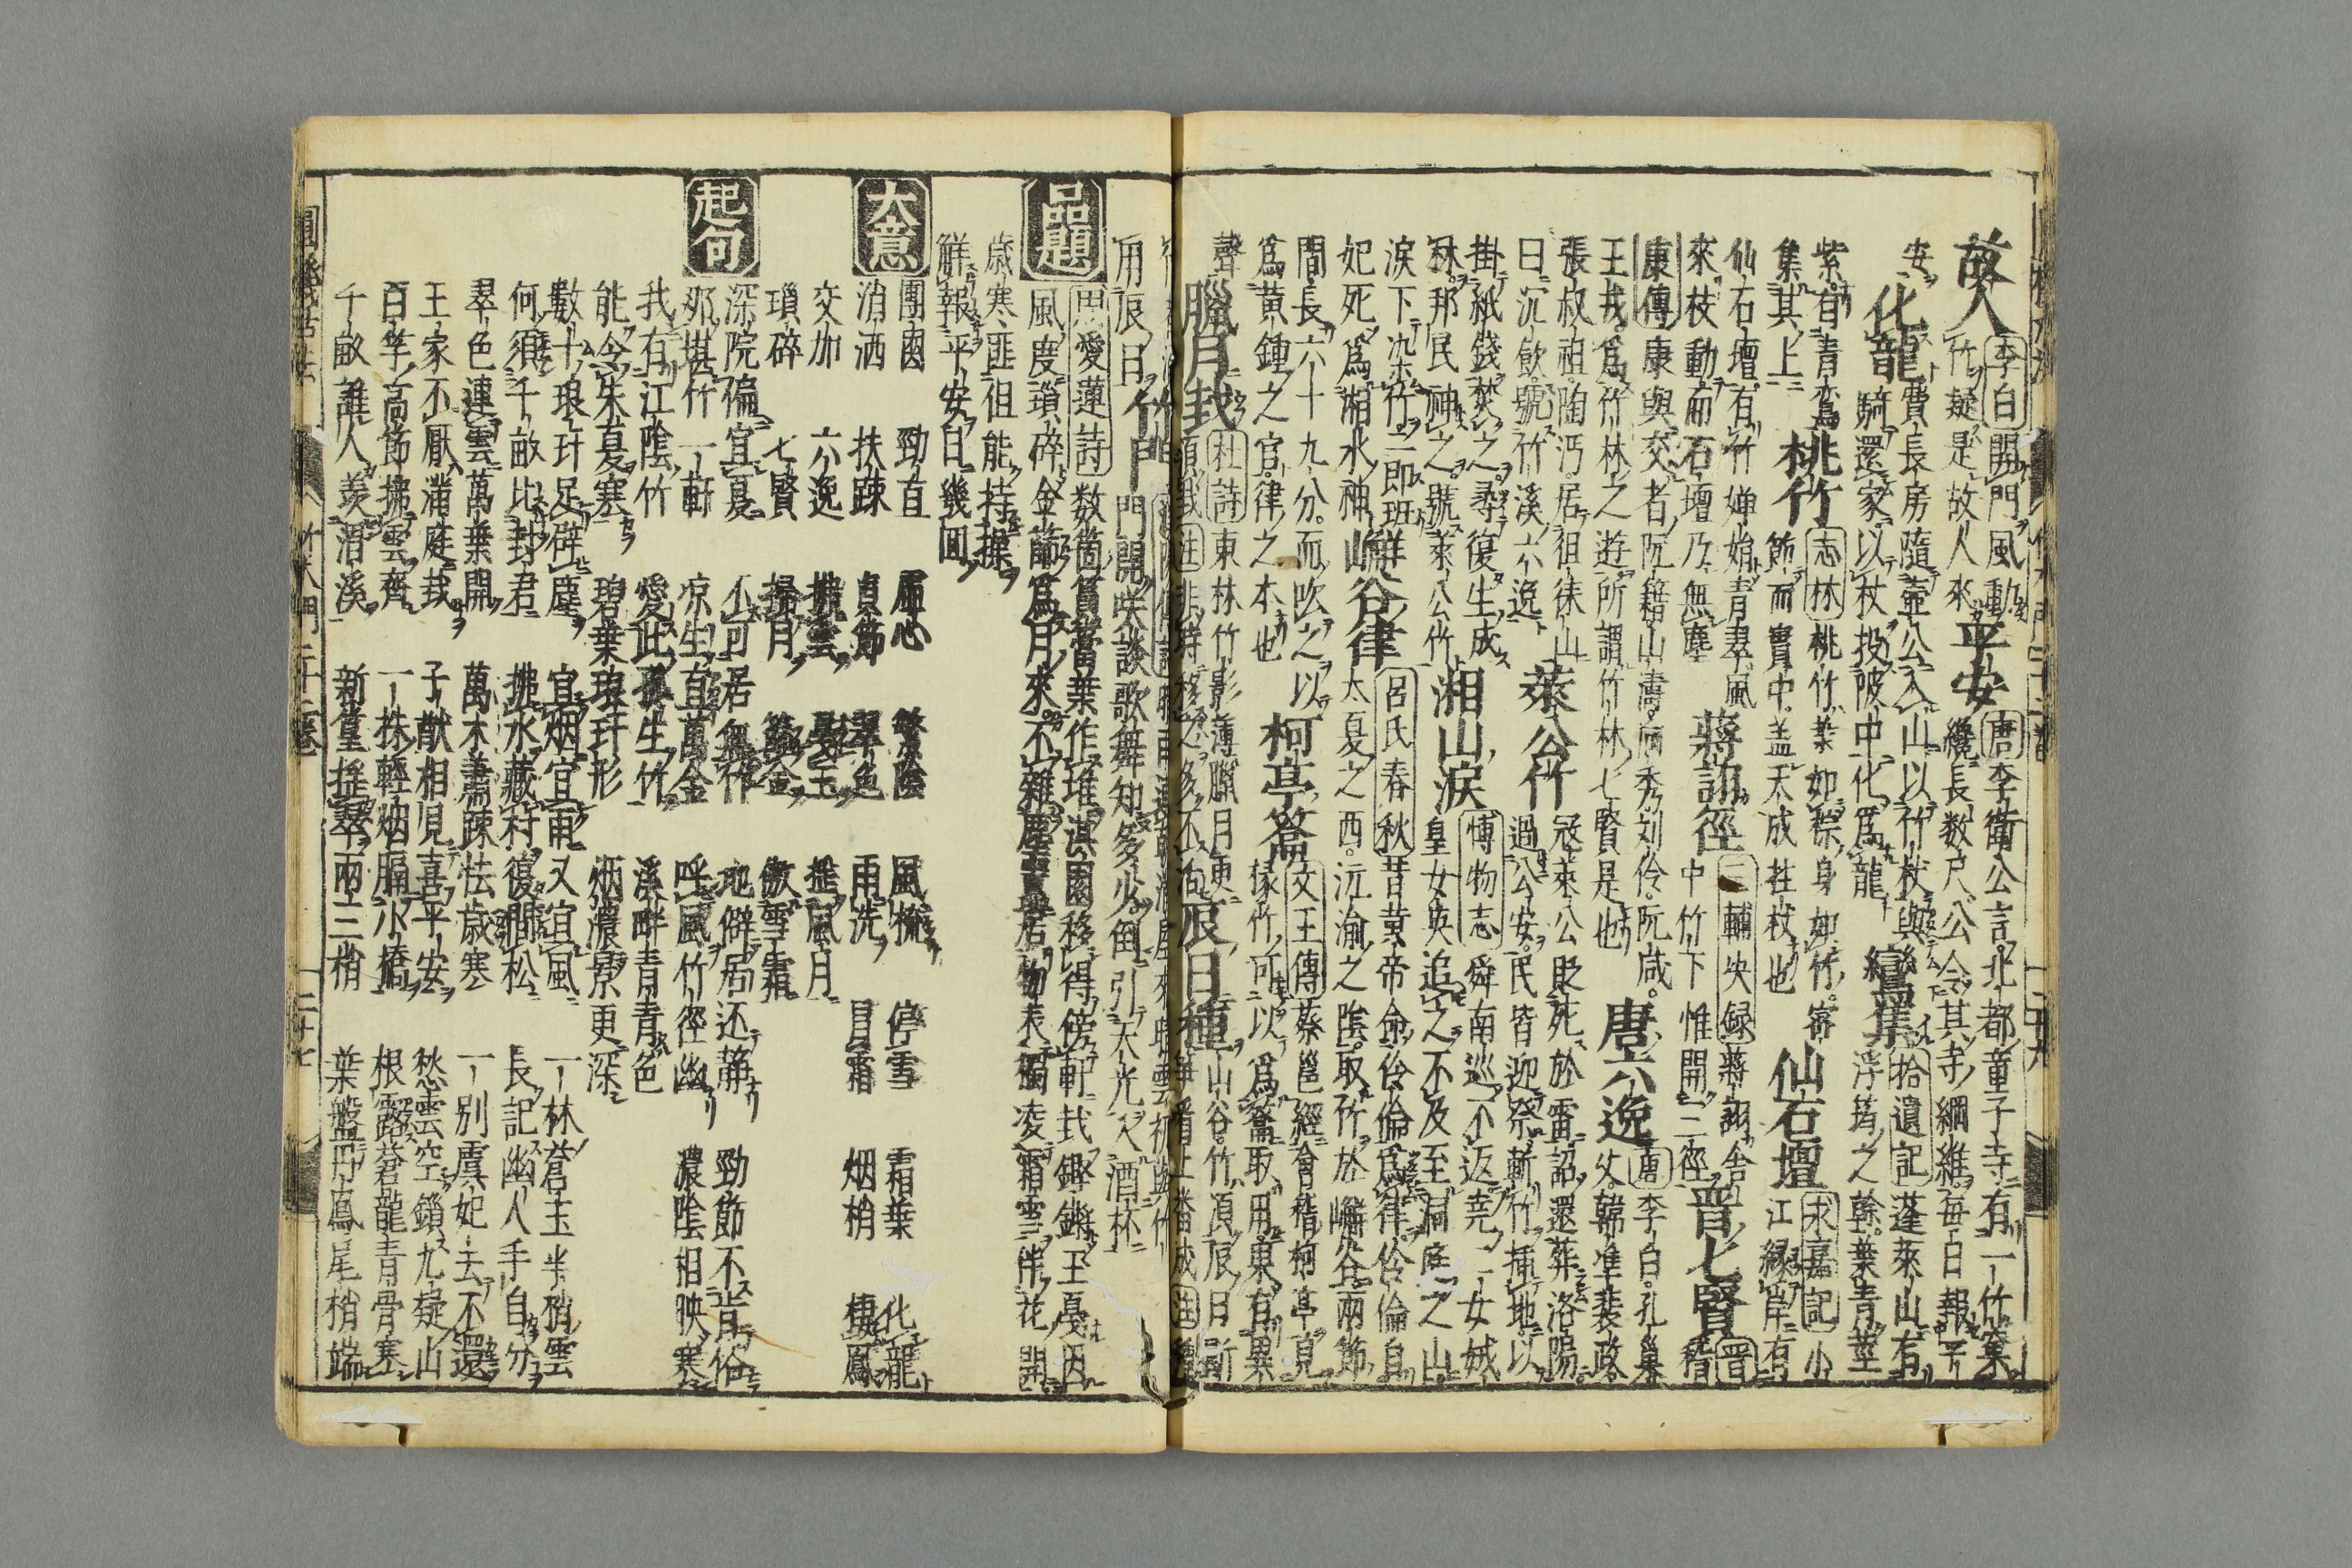 故人
李白開門風動
竹疑是故人來
平安
唐李衛公言北都童子寺有一竹窠
纔長数尺公令其寺綱維每日報平
安
化龍
費長房隨壷公入山以竹杖與
騎還家以杖投陂中化為龍
鸞集
拾遺記蓬萊山有
浮筠之幹葉青莖
紫有青鸞
集其上
桃竹
志林桃竹葉如椶身如竹密
節而實中盖天成拄杖也
仙石壇
永嘉記小
江緣岸有
仙石壇有竹嬋娟青翠風
來枝動而石壇乃無塵
蔣詡徑
三輔决録蔣詡舎
中竹下惟開三徑
晋七賢
晋嵇
康傳康與交者阮籍山濤向秀刘伶阮咸
王戎為竹林之遊所謂竹林七賢是也
唐六逸
唐李白孔巢
父韓準裴政
張叔祖陶沔居徂徠山
日沉飲號竹溪六逸
萊公竹
冦萊公貶死於雷詔還葬洛陽
過公安民皆迎祭斬竹插地以
掛紙錢焚之尋復生成
林邦民神之號萊公竹
湘山淚
博物志舜南巡不返堯二女娥
皇女英追之不及至洞庭之山
淚下染竹即班
妃死為湘水神
嶰谷律
呂氏春秋昔黄帝命伶倫為律伶倫自
太夏之西沅渝之陰取竹於嶰谷兩節
間長六十九分而吹之以
為黄鍾之官律之本也
柯亭
文王傳蔡邕經會稽柯亭見
椽竹可以為取用東有異
聲
臘月栽
杜詩東林竹影薄臘月更
辰日種
山谷竹須辰日斸
用辰日
竹門
門開咲談歌舞知多少倒引天光入酒杯
品題
周愛蓮詩数箇篔簹葉作堆淇園移得傍軒栽鏗鏘玉戛因
風度瑣碎金篩為月來不雜塵居物表獨凌霜雪伴花開
歳寒匪徂能持操
鮮報平安日幾回
大意
團圝 勁直 虛心 繁陰 風梳 停雪 霜葉 化龍
消洒 扶踈 貞節 翠色 雨洗 冐霜 烟梢 棲鳳
交加 六逸 拂雲 戞玉 搖風月
瑣碎 七賢 掃月 篩金 傲雪霜
起句
深院偏宜夏 不可居無竹 地僻居还静 勁節不肯俗
那堪竹一軒 凉生直萬金 呼風竹徑幽 濃陰相映寒
我有江陰竹 愛此孤生竹 溪畔青青色
能令朱夏寒 碧葉琅玕形 烟濃景更深
數十琅玕足辟塵 宜烟宜雨又宜風 一林蒼玉半梢雲
何須千畝比封君 拂水藏村復間松 長記幽人手自分
翠色連雲萬葉開 萬木蕭踈怯歳寒 一別虞妃去不還
王家不厭滿庭栽 子猷相見喜平安 愁雲空鎖九疑山
百竿高節拂雲齊 一抹輕烟隔小橋 根露蒼龍青骨塞
千畝誰人羡渭溪 新篁揺翠兩三梢 葉盤丹鳳尾梢端